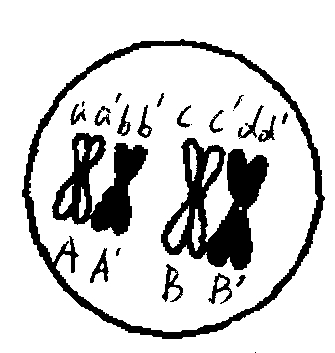 a a′ b b′ c c′ d d′
A A′ B B′